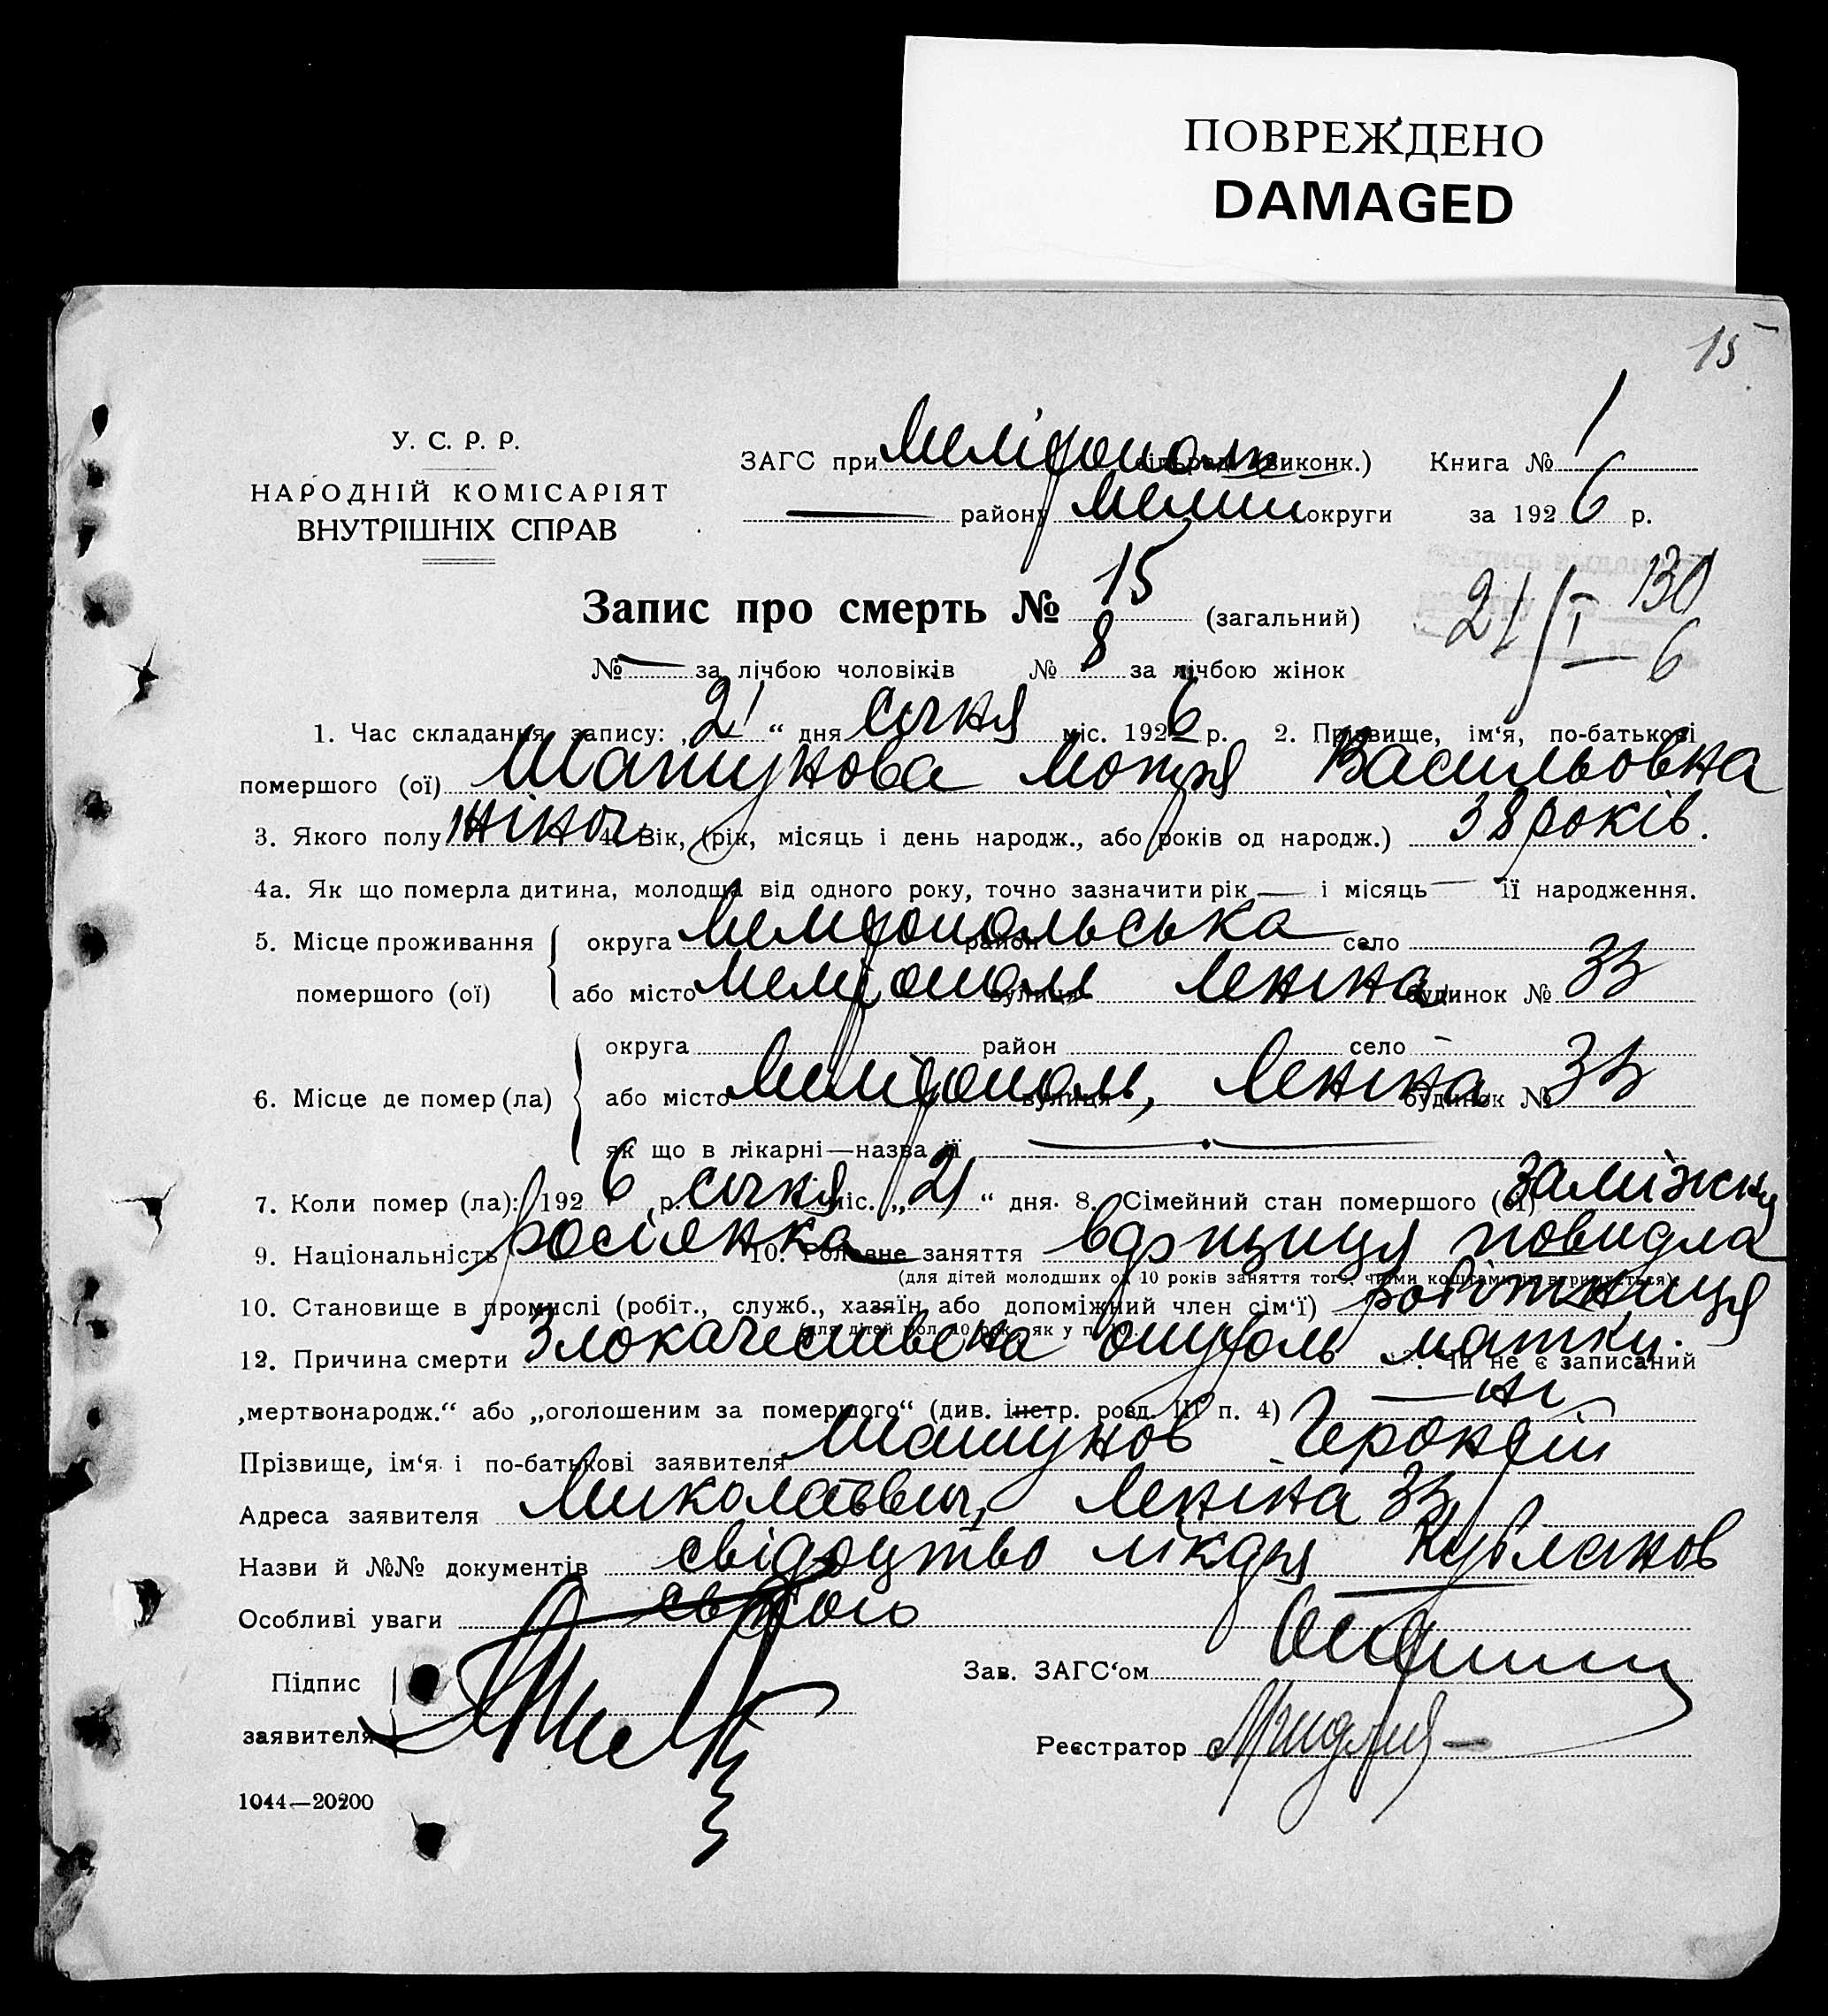 ПОВРЕЖДЕНО
DAMAGED
15
У. С. Р. Р.
НАРОДНІЙ КОМІСАРІЯТ
ВНУТРІШНІХ СПРАВ
ЗАГС при Меліто́пол (виконк.) Книга № 1
— району Мелит округи за 1926 р.
Запис про смерть № 15 (загальний)
21/I 6 130
№ — за лічбою чоловіків № 8 за лічбою жінок
1. Час складання запису: „21“ дня січня міс. 1926 р. 2. Прізвище, ім'я, по-батькові
помершого (ої) Мотря Васильовна
3. Якого полу жіноч 4. Вік, (рік, місяць і день народж., або років од народж.) 38 років.
4а. Як що померла дитина, молодша від одного року, точно зазначити рік — і місяць — її народження.
5. Місце проживання округа Мелітопольська район село
помершого (ої) або місто Мелітополь вулиця Леніна будинок № 33
округа район село
6. Місце де помер (ла) або місто Мелітополь, вулиця Леніна будинок № 33
як що в лікарні—назва її —
7. Коли помер (ла): 1926 р. січня міс. „21“ дня. 8. Сімейний стан помершого (ої) заміжня
9. Національність росіянка 10. Головне заняття повидла
(для дітей молодших од 10 років заняття того, чиїми коштами їх втримується).
10. Становище в промислі (робіт., служб., хазяїн або допоміжний член сім'ї) робітниця
(для дітей мол. 10 рок. як у п. 10)
12. Причина смерти Злокачествена опухоль матки. Чи не є записаний
„мертвонародж.“ або „оголошеним за помершого“ (див. інстр. розд. III п. 4) — ні
Прізвище, ім'я і по-батькові заявителя
Адреса заявителя Миколаєвич, Леніна 33,
Назви й №№ документів свідоцтво лікаря Кубланов
Особливі уваги
Підпис
заявителя
Зав. ЗАГС'ом
Реєстратор
1044—20200